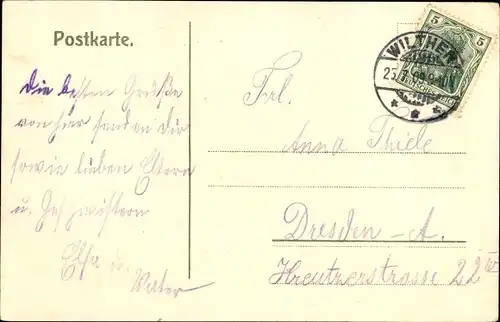 Postkarte.
5 5
WILTHEN
Die besten Grüße
von hier senden Dir
sowie lieben Eltern
u. Geschwistern
Elsa u.
Vater
Frl.
Anna Thiele
Dresden-A.
Kreutzerstrasse 22